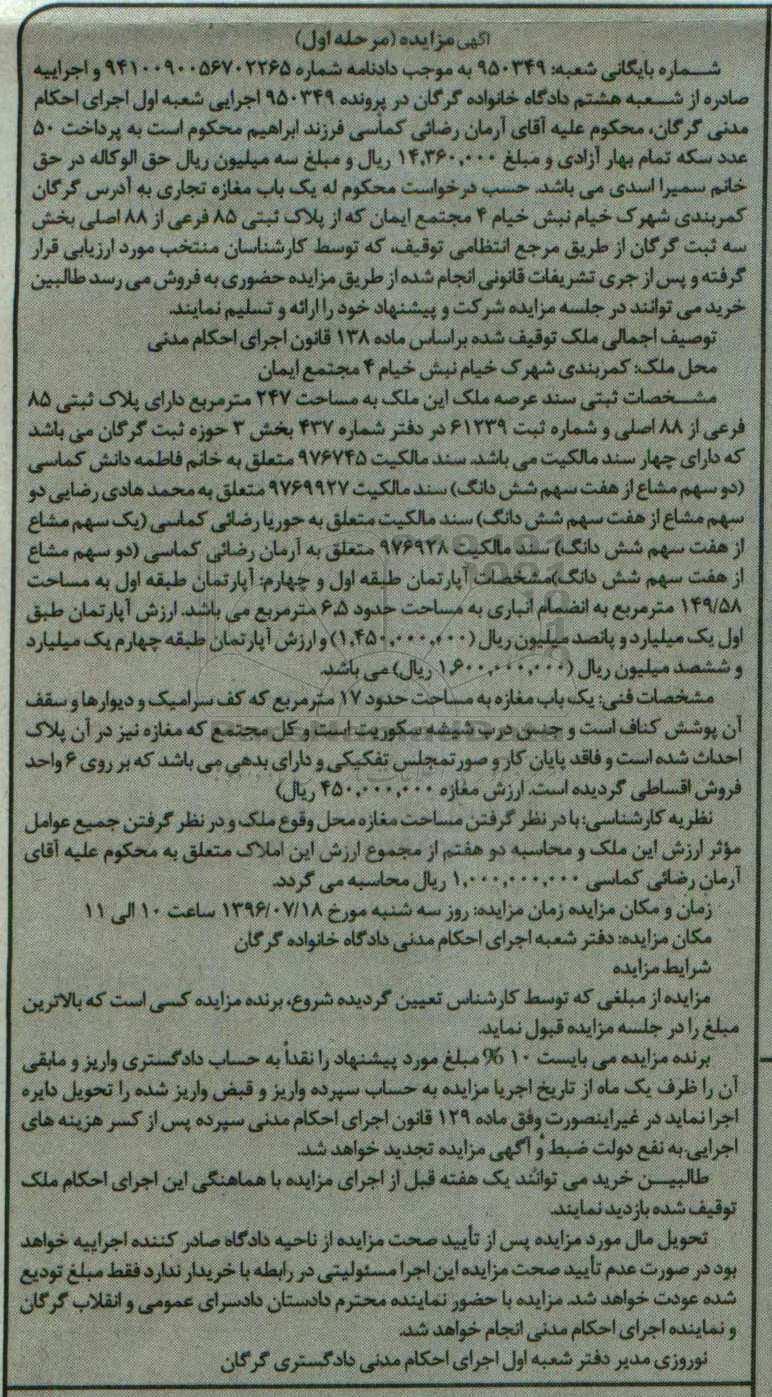 آگهی مزایده (مرحله اول)
شـــماره بایگانی شعبه: ۹۵۰۳۴۹ به موجب دادنامه شماره ۹۴۱۰۰۹۰۰۵۶۷۰۲۲۶۵ و اجراییه
صادره از شـــعبه هشتم دادگاه خانواده گرگان در پرونده ۹۵۰۳۴۹ اجرایی شعبه اول اجرای احکام
مدنی گرگان، محکوم علیه آقای آرمان رضائی کماسی فرزند ابراهیم محکوم است به پرداخت ۵۰
عدد سکه تمام بهار آزادی و مبلغ ۱۴,۳۶۰,۰۰۰ ریال و مبلغ سه میلیون ریال حق الوکاله در حق
خانم سمیرا اسدی می باشد. حسب درخواست محکوم له یک باب مغازه تجاری به آدرس گرگان
کمربندی شهرک خیام نبش خیام ۴ مجتمع ایمان که از پلاک ثبتی ۸۵ فرعی از ۸۸ اصلی بخش
سه ثبت گرگان از طریق مرجع انتظامی توقیف، که توسط کارشناسان منتخب مورد ارزیابی قرار
گرفته و پس از جری تشریفات قانونی انجام شده از طریق مزایده حضوری به فروش می رسد طالبین
خرید می توانند در جلسه مزایده شرکت و پیشنهاد خود را ارائه و تسلیم نمایند.
توصیف اجمالی ملک توقیف شده براساس ماده ۱۳۸ قانون اجرای احکام مدنی
محل ملک: کمربندی شهرک خیام نبش خیام ۴ مجتمع ایمان
مشـــخصات ثبتی سند عرصه ملک این ملک به مساحت ۲۴۷ مترمربع دارای پلاک ثبتی ۸۵
فرعی از ۸۸ اصلی و شماره ثبت ۶۱۲۳۹ در دفتر شماره ۴۳۷ بخش ۳ حوزه ثبت گرگان می باشد
که دارای چهار سند مالکیت می باشد. سند مالکیت ۹۷۶۷۴۵ متعلق به خانم فاطمه دانش کماسی
(دو سهم مشاع از هفت سهم شش دانگ) سند مالکیت ۹۷۶۹۹۲۷ متعلق به محمد هادی رضایی دو
سهم مشاع از هفت سهم شش دانگ) سند مالکیت متعلق به حوریا رضائی کماسی (یک سهم مشاع
از هفت سهم شش دانگ) سند مالکیت ۹۷۶۹۲۸ متعلق به آرمان رضائی کماسی (دو سهم مشاع
از هفت سهم شش دانگ)مشخصات آپارتمان طبقه اول و چهارم: آپارتمان طبقه اول به مساحت
۱۴۹/۵۸ مترمربع به انضمام انباری به مساحت حدود ۶,۵ مترمربع می باشد. ارزش آپارتمان طبق
اول یک میلیارد و پانصد میلیون ریال (۱,۴۵۰,۰۰۰,۰۰۰) و ارزش آپارتمان طبقه چهارم یک میلیارد
و ششصد میلیون ریال (۱,۶۰۰,۰۰۰,۰۰۰ ریال) می باشد.
مشخصات فنی: یک باب مغازه به مساحت حدود ۱۷ مترمربع که کف سرامیک و دیوارها و سقف
آن پوشش کناف است و جنس درب شیشه سکوریت است و کل مجتمع که مغازه نیز در آن پلاک
احداث شده است و فاقد پایان کار و صورتمجلس تفکیکی و دارای بدهی می باشد که بر روی ۶ واحد
فروش اقساطی گردیده است. ارزش مغازه ۴۵۰,۰۰۰,۰۰۰ ریال)
نظریه کارشناسی: با در نظر گرفتن مساحت مغازه محل وقوع ملک و در نظر گرفتن جمیع عوامل
مؤثر ارزش این ملک و محاسبه دو هفتم از مجموع ارزش این املاک متعلق به محکوم علیه آقای
آرمان رضائی کماسی ۱,۰۰۰,۰۰۰,۰۰۰ ریال محاسبه می گردد.
زمان و مکان مزایده زمان مزایده: روز سه شنبه مورخ ۱۳۹۶/۰۷/۱۸ ساعت ۱۰ الی ۱۱
مکان مزایده: دفتر شعبه اجرای احکام مدنی دادگاه خانواده گرگان
شرایط مزایده
مزایده از مبلغی که توسط کارشناس تعیین گردیده شروع، برنده مزایده کسی است که بالاترین
مبلغ را در جلسه مزایده قبول نماید.
برنده مزایده می بایست ۱۰ % مبلغ مورد پیشنهاد را نقداً به حساب دادگستری واریز و مابقی
آن را ظرف یک ماه از تاریخ اجریا مزایده به حساب سپرده واریز و قبض واریز شده را تحویل دایره
اجرا نماید در غیراینصورت وفق ماده ۱۲۹ قانون اجرای احکام مدنی سپرده پس از کسر هزینه های
اجرایی به نفع دولت ضبط و آگهی مزایده تجدید خواهد شد.
طالبیـــن خرید می توانند یک هفته قبل از اجرای مزایده با هماهنگی این اجرای احکام ملک
توقیف شده بازدید نمایند.
تحویل مال مورد مزایده پس از تأیید صحت مزایده از ناحیه دادگاه صادر کننده اجراییه خواهد
بود در صورت عدم تأیید صحت مزایده این اجرا مسئولیتی در رابطه با خریدار ندارد فقط مبلغ تودیع
شده عودت خواهد شد. مزایده با حضور نماینده محترم دادستان دادسرای عمومی و انقلاب گرگان
و نماینده اجرای احکام مدنی انجام خواهد شد.
نوروزی مدیر دفتر شعبه اول اجرای احکام مدنی دادگستری گرگان